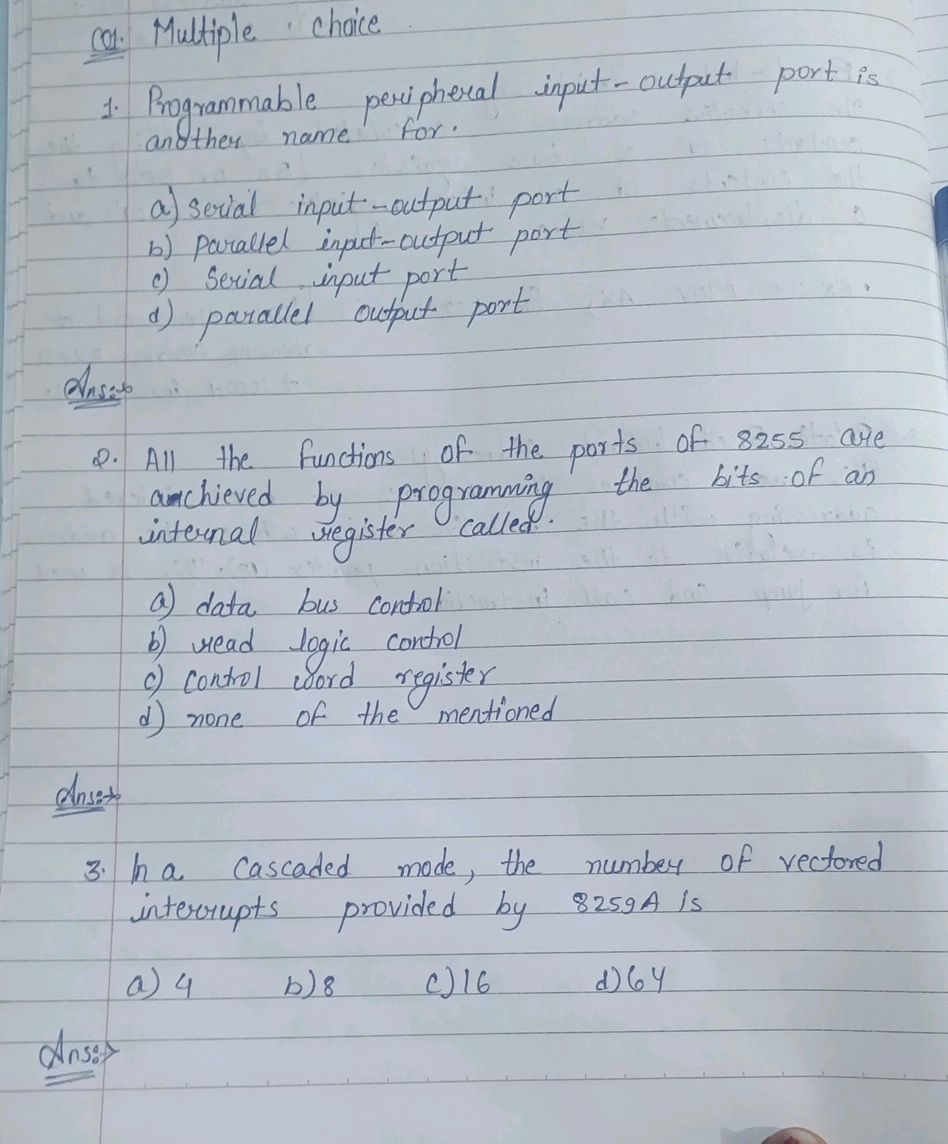 Q1. Multiple choice
1. Programmable peripheral input-output port is
another name for.
a) serial input-output port
b) parallel input-output port
c) Serial input port
d) parallel output port
Ans:→
2. All the functions of the ports of 8255 are
achieved by programming the bits of an
internal register called.
a) data bus control
b) read logic control
c) control word register
d) none of the mentioned
Ans:→
3. In a cascaded mode, the number of vectored
interrupts provided by 8259A is
a) 4 b) 8 c) 16 d) 64
Ans:→